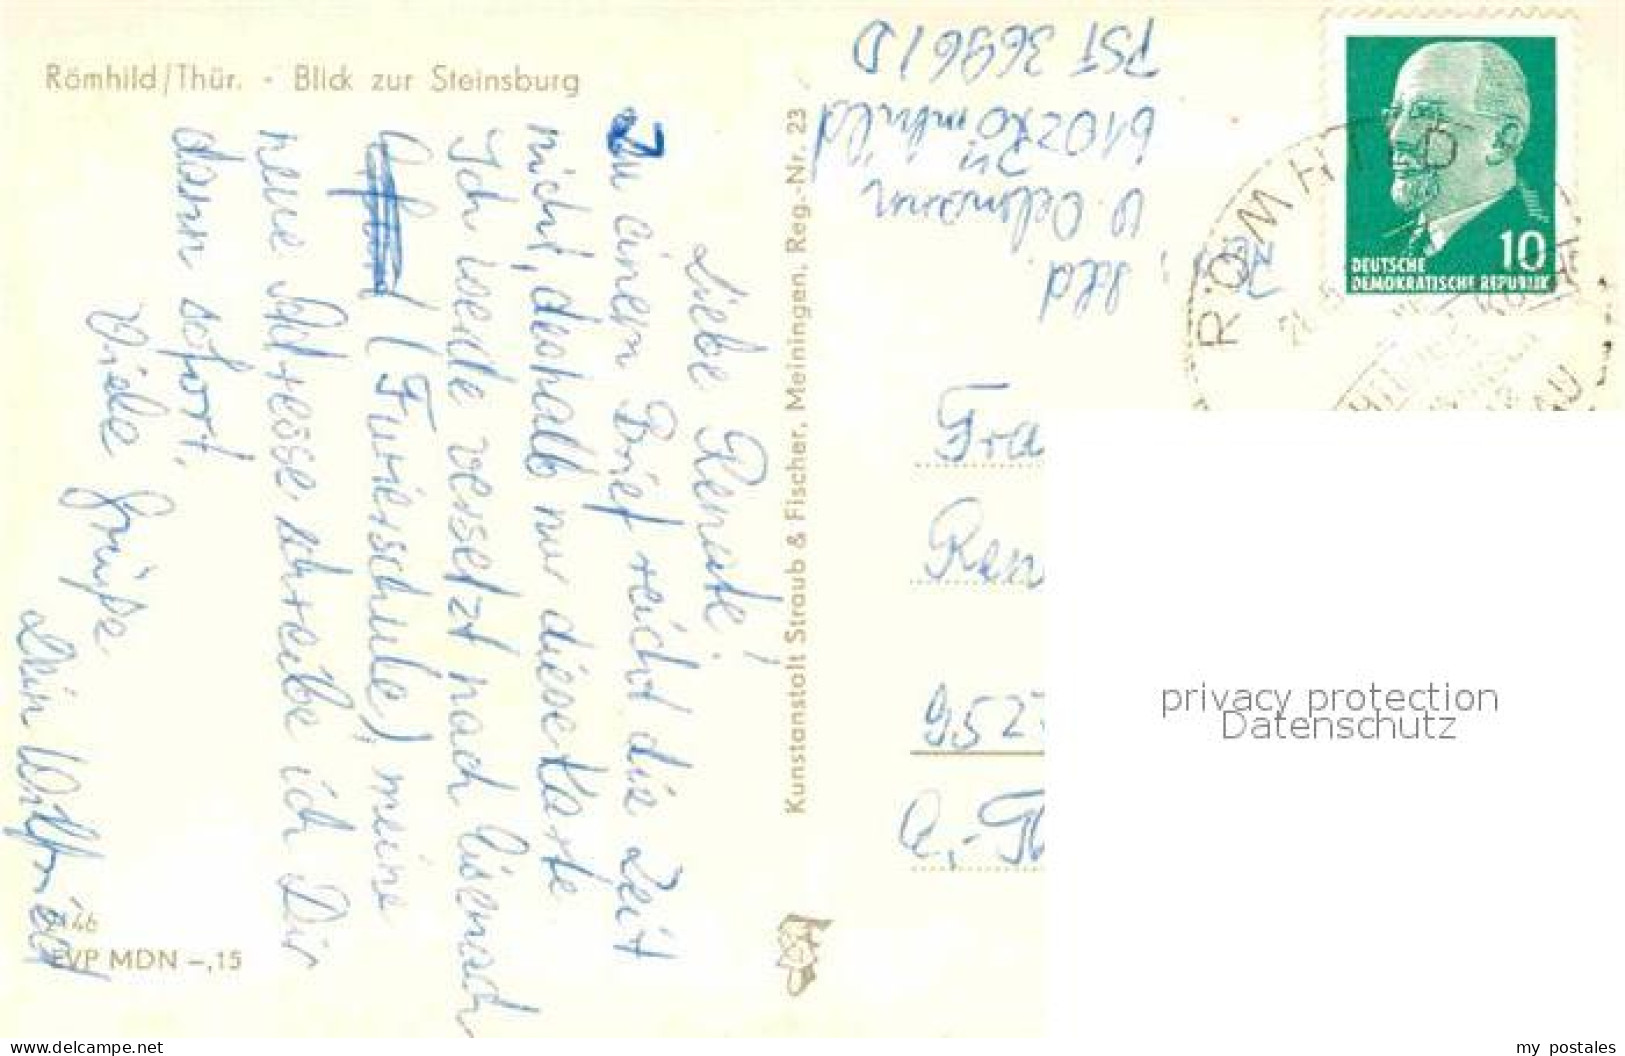 Römhild/Thür. - Blick zur Steinsburg
Liebe Renate!
Zu einem Brief reicht die Zeit
nicht, deshalb nur diese Karte.
Ich werde versetzt nach Eisenach
(Furierschule) meine
neue Adresse schreibe ich Dir
dann sofort.
Viele Grüße
Dein Wilfried
7146
EVP MDN –,15
Kunstanstalt Straub & Fischer, Meiningen, Reg.-Nr. 23
Sld.
W.
6102 Römhild
PSF 3696/D
RÖMHILD
DEUTSCHE
DEMOKRATISCHE REPUBLIK
10
Fra
Ren
952
privacy protection
Datenschutz
www.delcampe.net
my postales